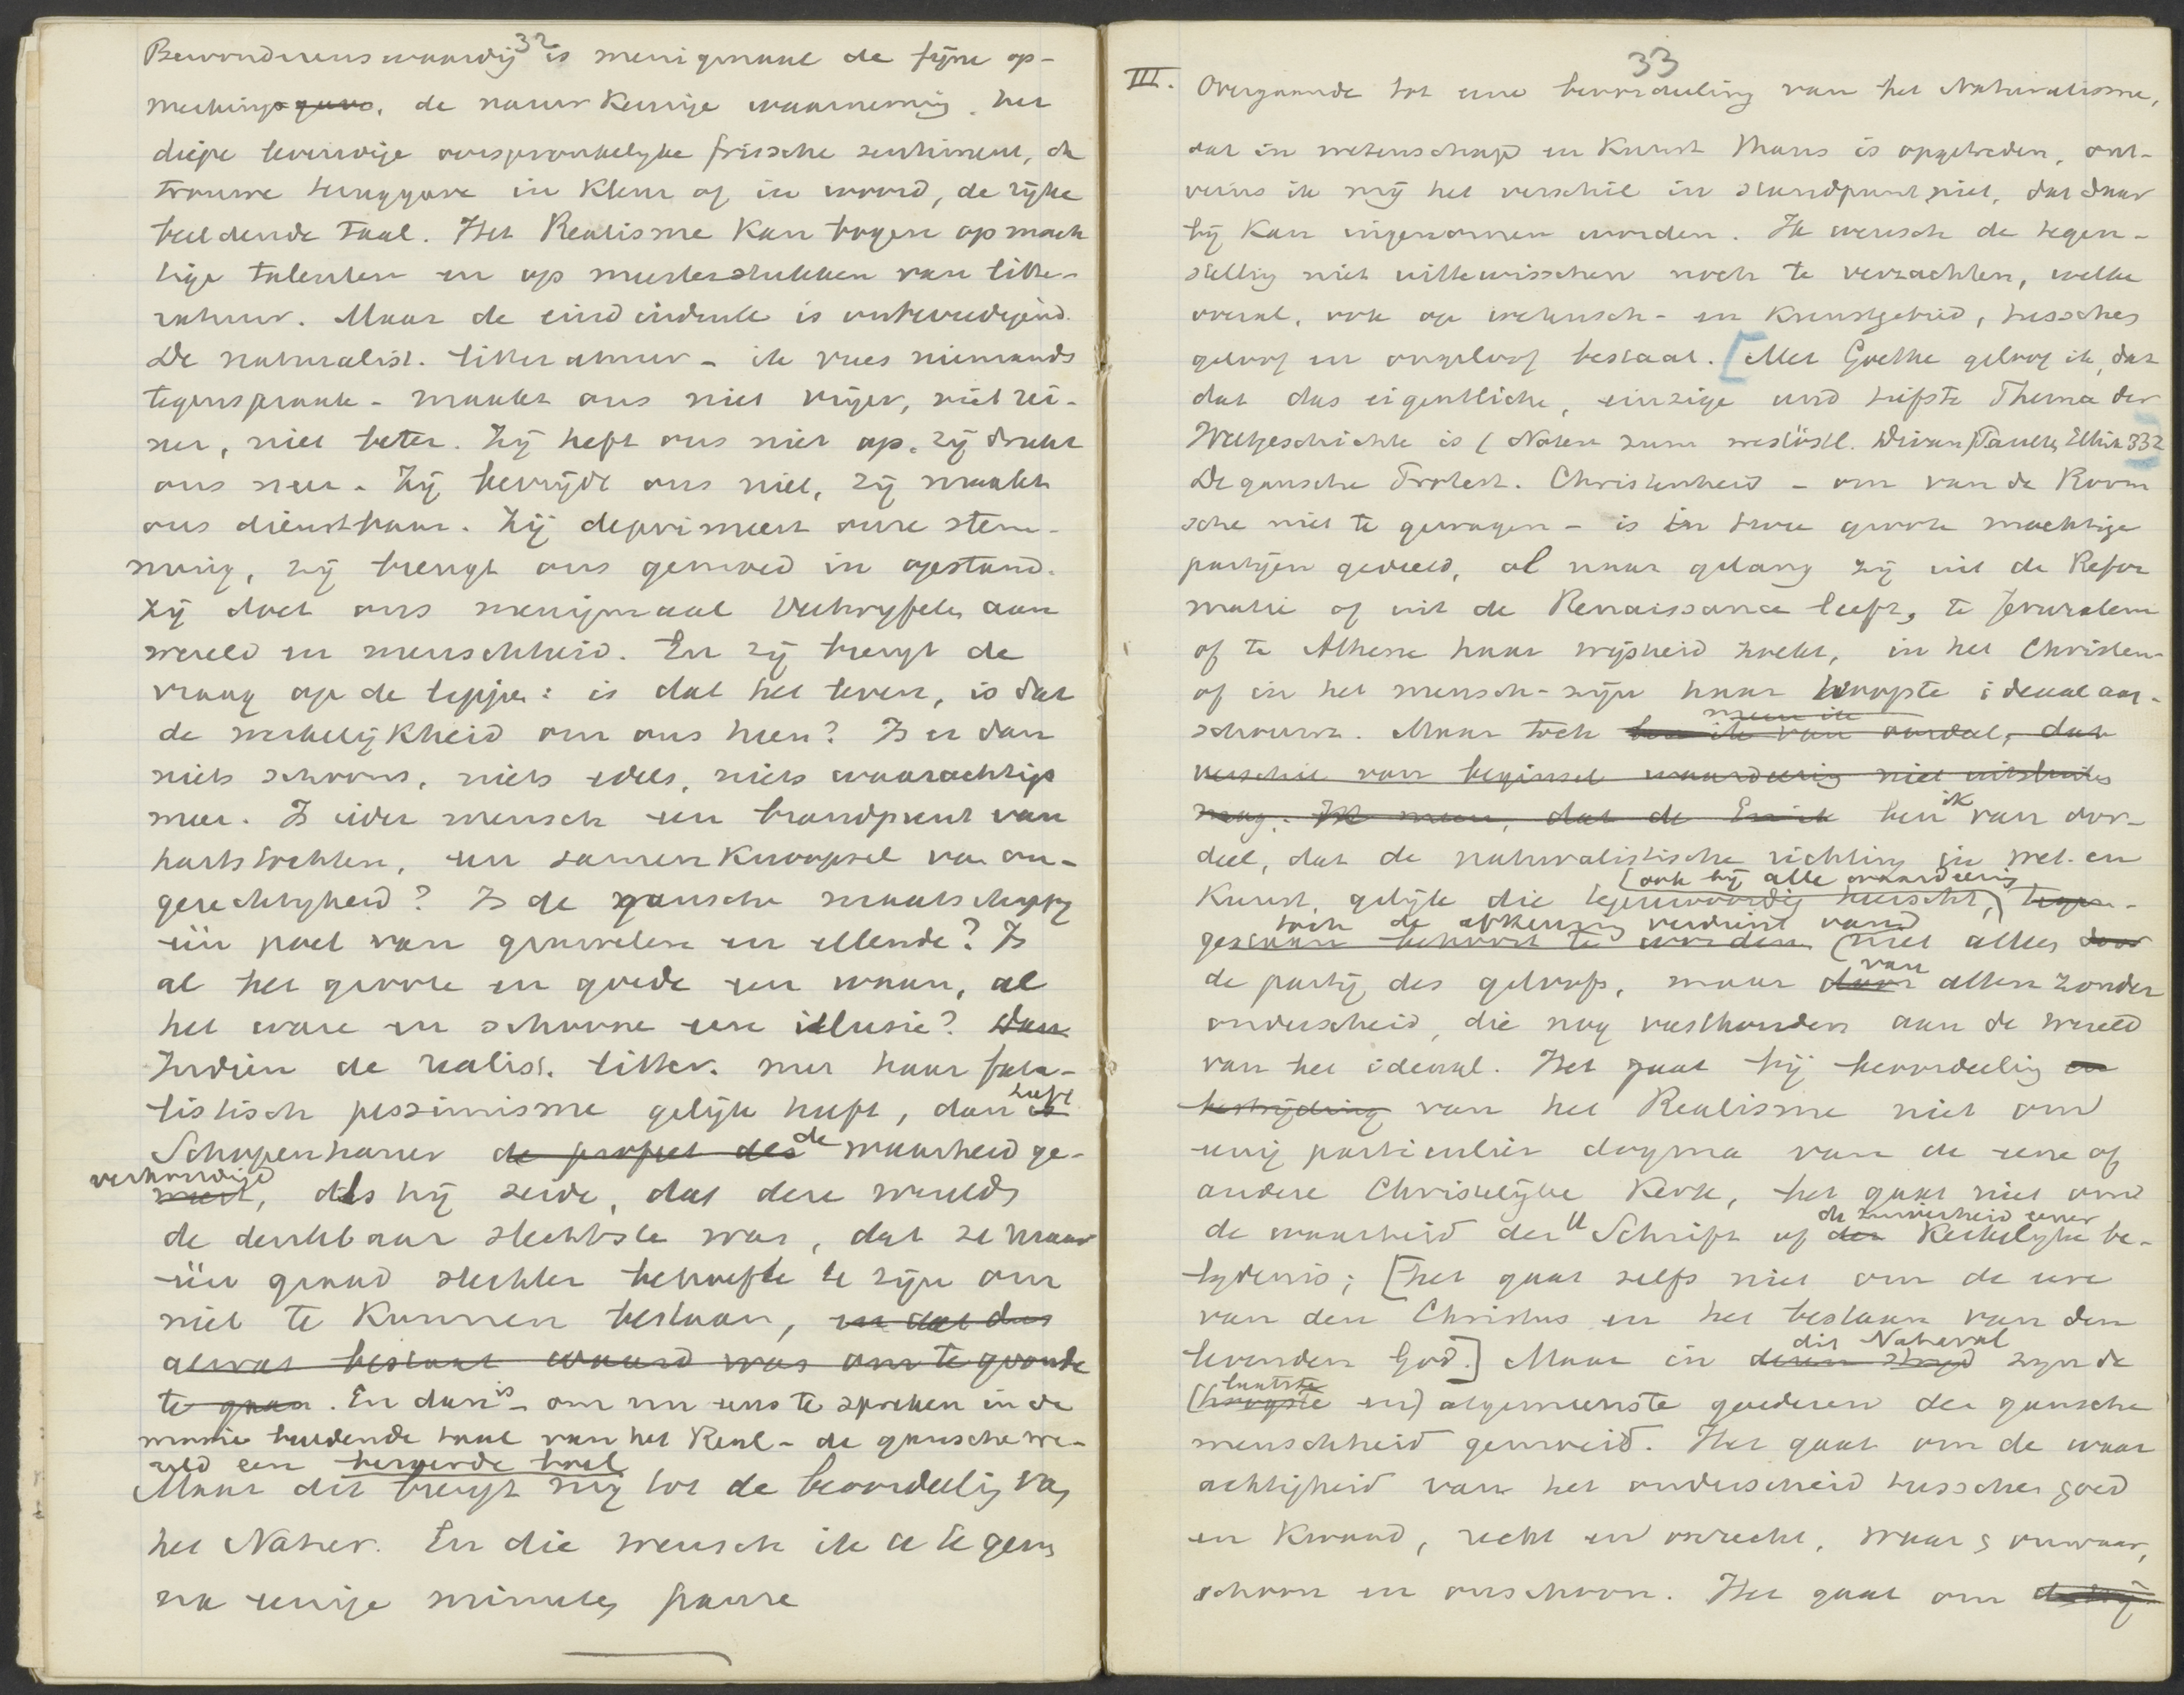 32
Bewonderenswaardig is menigmaal de fijne op-
merkings gave, de nauwkeurige waarneming, het
diepe levendige oorspronkelijke frissche sentiment, de
trouwe teruggave in kleur of in woord, de rijke
beeldende taal. Het Realisme kan bogen op mach
tige talenten en op meesterstukken van litte-
ratuur. Maar de eindindruk is onbevredigend.
De naturalist. litteratuur - ik vrees niemands
tegenspraak - maakt ons niet vrijer, niet rei-
ner, niet beter. Zij heft ons niet op, zij drukt
ons neer. Zij bevrijdt ons niet, zij maakt
ons dienstbaar. Zij deprimeert onze stem-
ming, zij brengt ons gemoed in opstand.
Zij doet ons menigmaal vertwijfelen aan
wereld en menschheid. En zij brengt de
vraag op de lippen: is dat het leven, is dat
de werkelijkheid om ons heen? Is er dan
niets schoons, niets edels, niets waarachtigs
meer. Is ieder mensch een brandpunt van
hartstochten, een samenknoopsel van on-
gerechtigheid? Is de gansche maatschappij
één poel van gruwelen en ellende? Is
al het groote en goede een waan, al
het ware en schoone eene illusie? Dan
Indien de realist. litter. met haar fata-
listisch pessimisme gelijk heeft, dan is heeft
Schopenhauer de profeet des de waarheid ge-
verkondigd
weest, als hij zeide, dat deze wereld
de denkbaar slechtste was, dat ze maar
één graad slechter behoefte te zijn om
niet te kunnen bestaan, en dat dus
alwat bestaat waard was om te gronde
te gaan. En dan is - om nu eens te spreken in de
mooie beeldende taal van het Real - de gansche we-
reld een
Maar dit brengt mij tot de beoordeeling van
het Natur. En die wensch ik U te geven
na eenige minuten pauze
33
III. Overgaande tot eene beoordeeling van het Naturalisme,
dat in wetenschap en kunst thans is opgetreden, ont-
veins ik mij het verschil in standpunt niet, dat daar
bij kan ingenomen worden. Ik wensch de tegen-
stelling niet uittewisschen noch te verzachten, welke
overal, ook op wetensch- en kunstgebied, tusschen
geloof en ongeloof bestaat. [Met Goethe geloof ik, dat
dat das eigentliche, einzige und tiefste Thema der
Weltgeschichte is (Noten zum westöstl. Divan) Paulsen, Ethik 332
De gansche Protest. Christenheid - om van de Room
sche niet te gewagen - is in twee groote machtige
partijen gedeeld, al naar gelang zij uit de Refor
matie of uit de Renaissance leeft, te Jeruzalem
of te Athene haar wijsheid zoekt, in het Christen-
of in het mensch-zijn haar hoogste ideaal aan-
schouwt. Maar toch ben ik van oordeel, dat
meen ik
verschil van beginsel waardeering niet uitsluiten
mag. Ik meen, dat de ben ik van oor-
deel, dat de naturalistische richting in wet. en
kunst, gelijk die tegenwoordig heerscht, tegen-
(ook bij alle waardeering)
toch de afkeuring verdient van
gestaan behoort te worden (niet alleen door
de partij des geloofs, maar door van allen zonder
onderscheid, die nog vasthouden aan de wereld
van het ideaal. Het gaat bij beoordeeling en
bestrijding van het Realisme niet om
eenig particulier dogma van de eene of
andere Christelijke Kerk, het gaat niet om
de waarheid der H Schrift of der de zuiverheid eener Kerkelijke be-
lijdenis; [het gaat zelfs niet om de eere
van den Christus en het bestaan van den
levenden God.] Maar in dezen strijd dit Natural zijn de
laatste
(hoogste en) algemeenste goederen der gansche
menschheid gemoeid. Het gaat om de waar
achtigheid van het onderscheid tusschen goed
en kwaad, recht en onrecht, waar & onwaar,
schoon en onschoon. Het gaat om